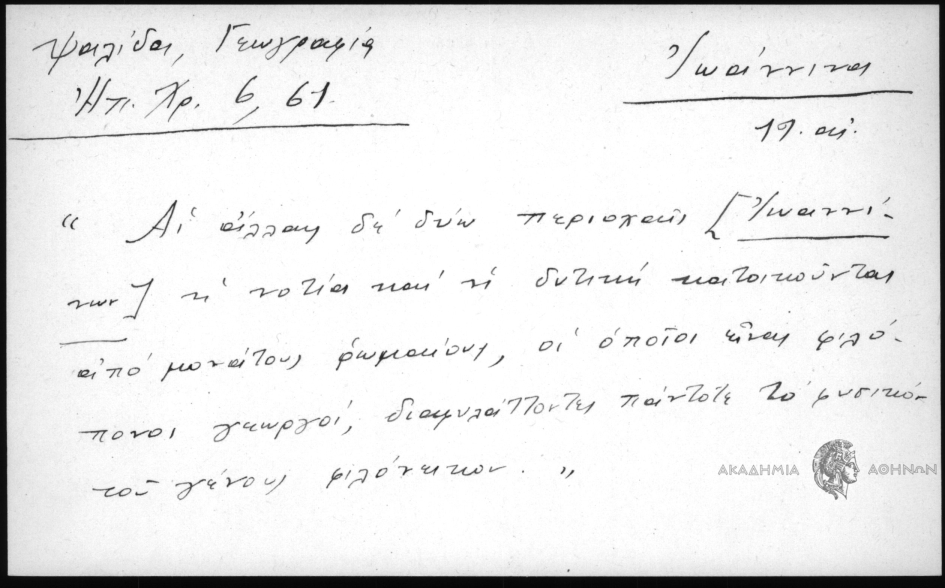 Ψαλίδα, Γεωγραφία
Ἠπ. Χρ. 6, 61.
Ἰωάννινα
19. αἰ.
“ Αἱ ἄλλαι δὲ δύω περιοχαὶ [Ἰωαννί-
νων] ἡ νοτία καὶ ἡ δυτικὴ κατοικοῦνται
ἀπὸ μονάτους ῥωμαίους, οἱ ὁποῖοι εἶναι φιλό-
πονοι γεωργοί, διαφυλάττοντες πάντοτε τὸ φυσικὸν
τοῦ γένους φιλόνεικον. „
ΑΚΑΔΗΜΙΑ ΑΘΗΝΩΝ